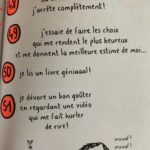 48
j'arrête complètement!
49
j'essaie de faire les choix
qui me rendent le plus heureux
et me donnent la meilleure estime de moi...
50
je lis un livre géniaaal!
51
je dévore un bon goûter
en regardant une vidéo
qui me fait hurler
de rire!
mouaf!
mouaf!